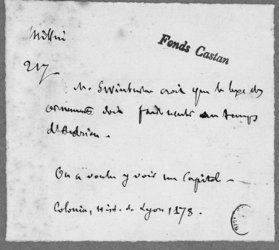 Millin
Fonds Castan
217
M. Swinburne croit que le luxe des
ornements doit faire remonter au temps
d'Hadrien.
On a voulu y voir un Capitole.
Colonia, Hist. de Lyon, 178.